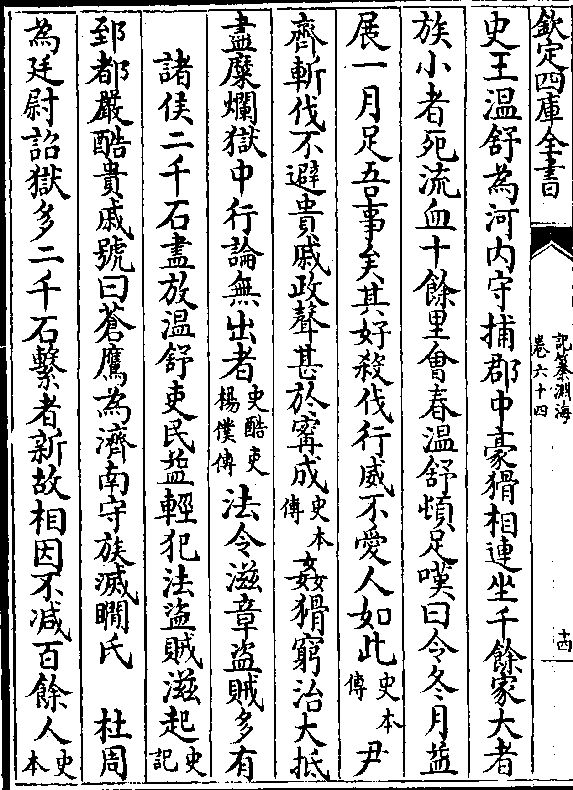 欽定四庫全書
記纂淵海
卷六十四
十四
史王温舒為河内守捕郡中豪猾相連坐千餘家大者
族小者死流血十餘里會春温舒頓足嘆曰令冬月益
展一月足吾事矣其好殺伐行威不愛人如此史本傳 尹
齊斬伐不避貴戚政聲甚於寗成史本傳 姦猾窮治大抵
盡糜爛獄中行論無出者史酷吏楊僕傳 法令滋章盜賊多有
諸侯二千石盡放温舒吏民益輕犯法盜賊滋起史記
郅都嚴酷貴戚號曰蒼鷹為濟南守族滅瞷氏 杜周
為廷尉詔獄多二千石繫者新故相因不减百餘人史本